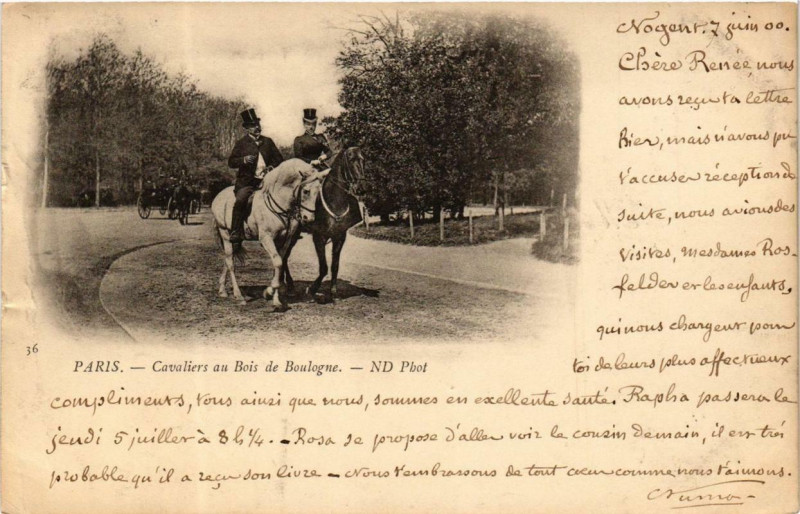 Nogent. 7 juin 00.
Chère Renée, nous
avons reçu ta lettre
hier, mais n'avons pu
t'accuser réception de
suite, nous avions des
visites, Mesdames Ros-
felder et les enfants,
qui nous chargent pour
toi de leurs plus affectueux
36
PARIS. — Cavaliers au Bois de Boulogne. — ND Phot
compliments, tous ainsi que nous, sommes en excellente santé. Rapha passera le
jeudi 5 juillet à 8 h ¼. - Rosa se propose d'aller voir le cousin demain, il est très
probable qu'il a reçu son livre — Nous t'embrassons de tout cœur comme nous t'aimons.
Numa